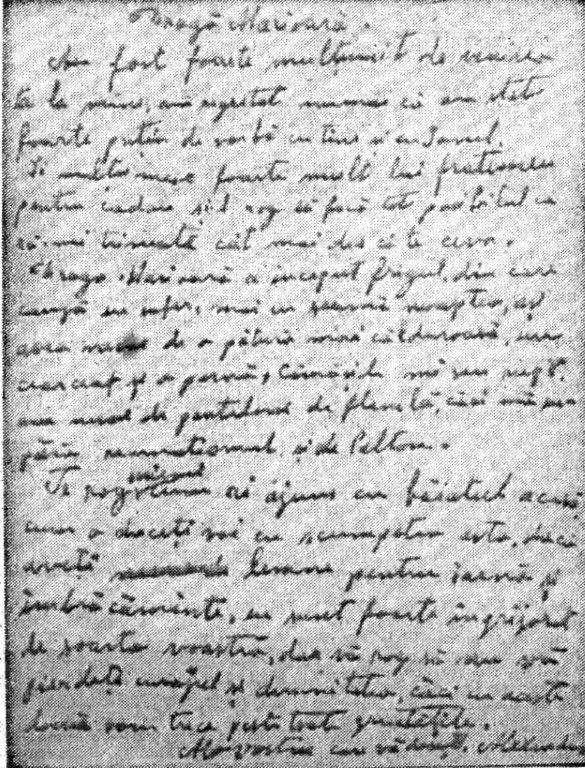 Dragă Marioară.
Am fost foarte mulțumit de venirea
ta la mine, am regretat numai că am stat
foarte puțin de vorbă cu tine și cu Ionel.
Îi mulțumesc foarte mult lui
pentru cadou și-l rog să facă tot posibilul ca
să-mi trimeată cât mai des câte ceva.
Dragă Marioară a început frigul, din care
cauză eu sufer, mai cu seamă noaptea, aș
avea nevoe de o pătură mai călduroasă, un
cearceaf și o pernă, cămășile mi s-au rupt.
am nevoe de pantaloni de flanelă, căci mă
reumatismul, și de Palton.
Te rog
cum o duceți voi cu scumpetea asta, dacă
aveți lemne pentru iarnă și
îmbrăcăminte, eu sunt foarte îngrijorat
de soarta voastră, dar vă rog să nu vă
pierdeți curajul și demnitatea, căci cu acestea
vom trece peste toate greutățile.
Al vostru care vă dorește. Alexandru